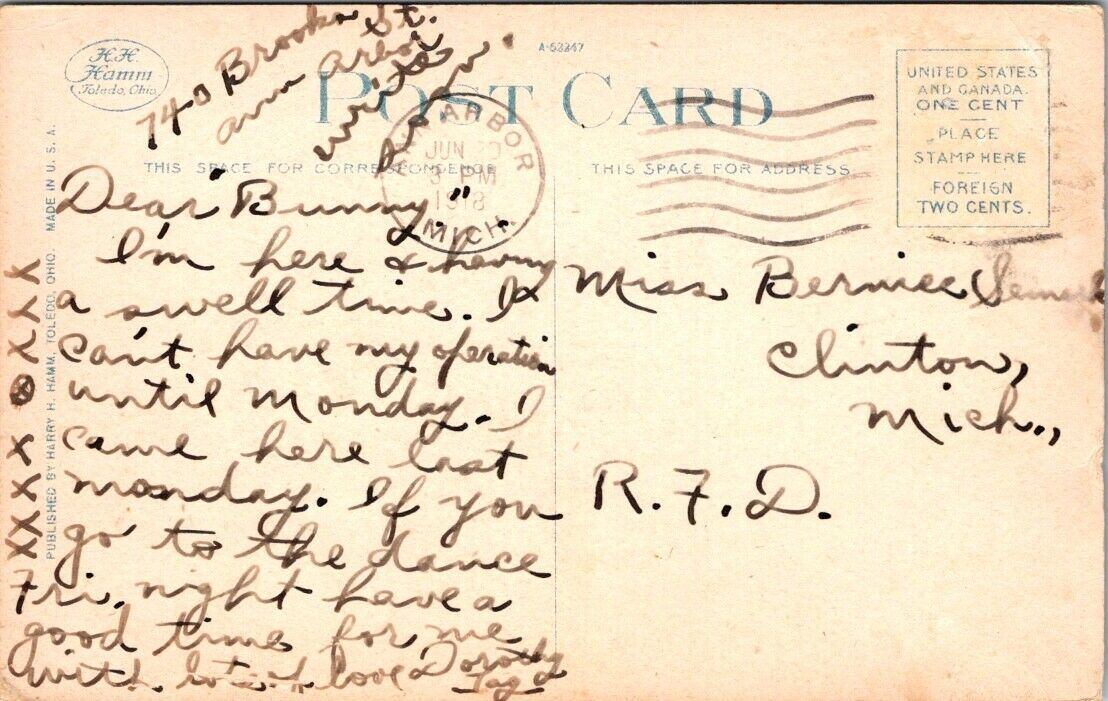 H.H.
Hamm
Toledo, Ohio
740 Brooks St.
Ann Arbor
write
A-62247
POST CARD
ANN ARBOR
JUN
3 PM
1918
MICH.
UNITED STATES
AND CANADA
ONE CENT
PLACE
STAMP HERE
FOREIGN
TWO CENTS.
THIS SPACE FOR CORRESPONDENCE
THIS SPACE FOR ADDRESS
PUBLISHED BY HARRY H. HAMM, TOLEDO, OHIO. MADE IN U. S. A.
XXXX⊗XXXX
Dear "Bunny"
I'm here & having
a swell time. I
can't have my operation
until Monday. I
came here last
Monday. If you
go to the dance
Fri. night have a
good time for me
with lots of love Dorothy
Miss Berniece
Clinton,
Mich.,
R.F.D.